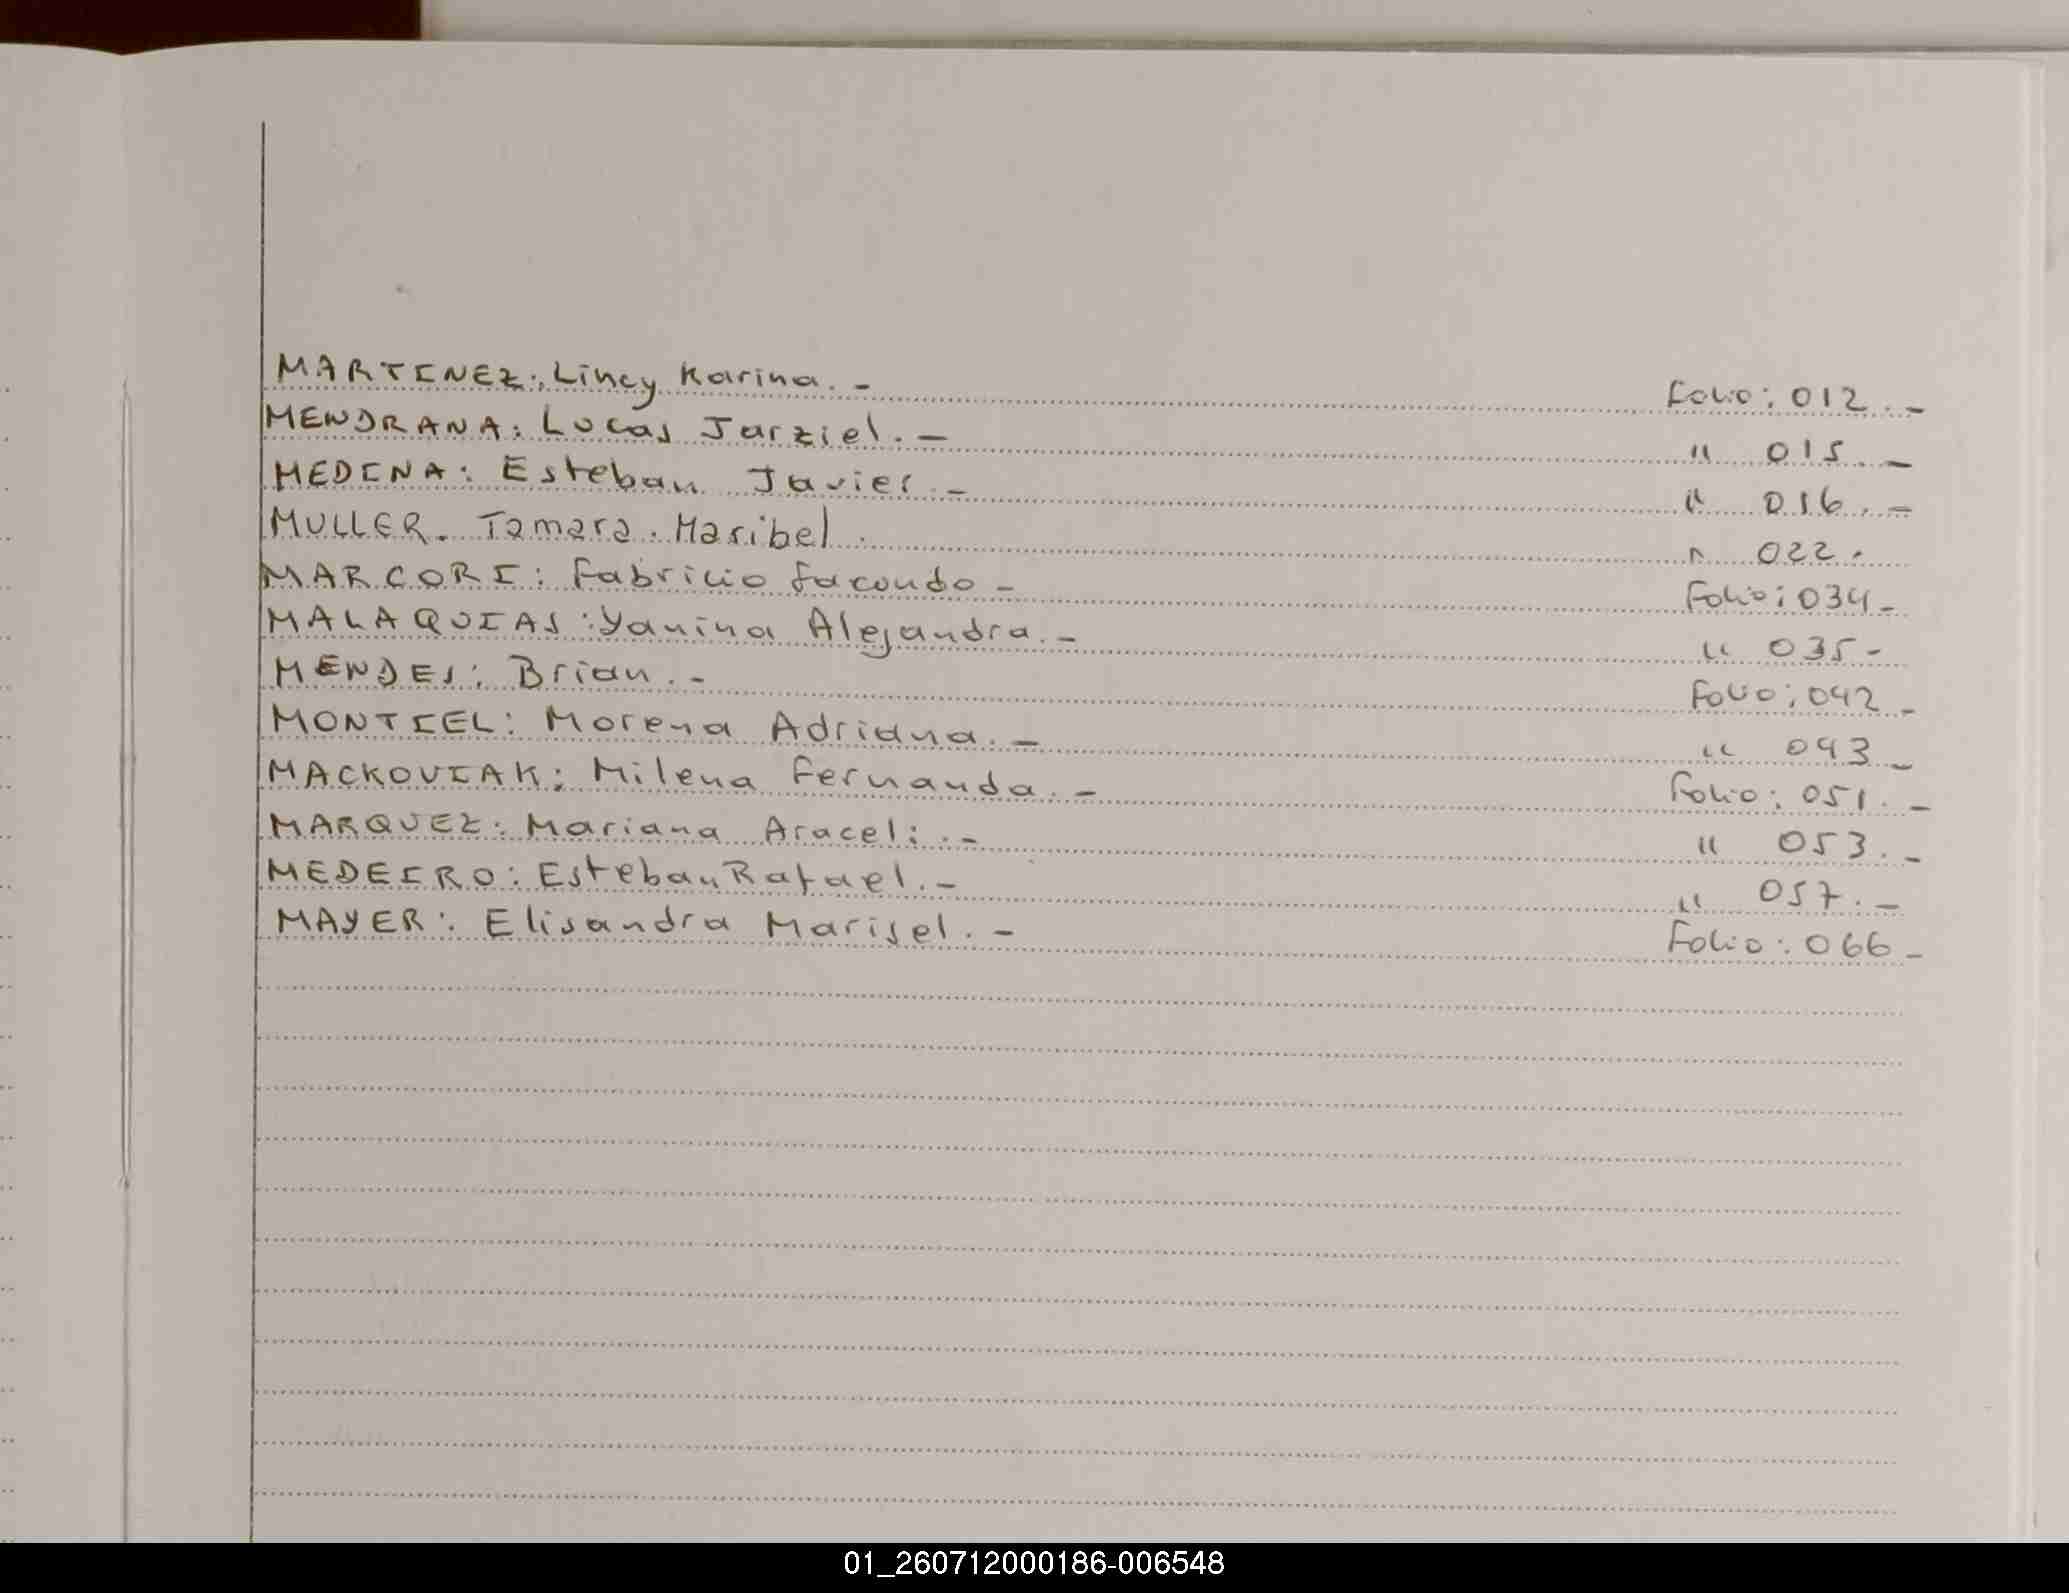 MARTINEZ: Lincy Karina. - Folio: 012. -
MENDRANA: Lucas Jarziel. - " 015. -
MEDINA: Esteban Javier. - " 016. -
MULLER. Tamara. Maribel. " 022.
MARCORI: Fabricio facundo - Folio: 034 -
MALAQUIAS: Yanina Alejandra. - " 035 -
MENDES: Brian. - Folio: 042 -
MONTIEL: Morena Adriana. - " 043 -
MACKOVIAK: Milena Fernanda. - Folio: 051. -
MARQUEZ: Mariana Araceli. - " 053. -
MEDEIRO: Esteban Rafael. - " 057. -
MAYER: Elisandra Marisel. - Folio: 066 -
01_260712000186-006548